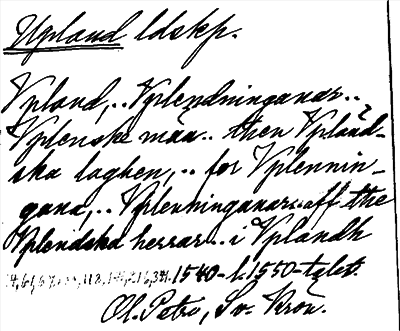 Upland ldskp.
Vpland,.. Vplendninganar..
Vplenske män.. then Vpländ-
ska laghen,.. for Vplennin-
gana,.. Vplenninganar..aff the
Vplendska herrar.. i Vplandh
1540-t.1550-talet.
Ol. Petri, Sv. Krön.